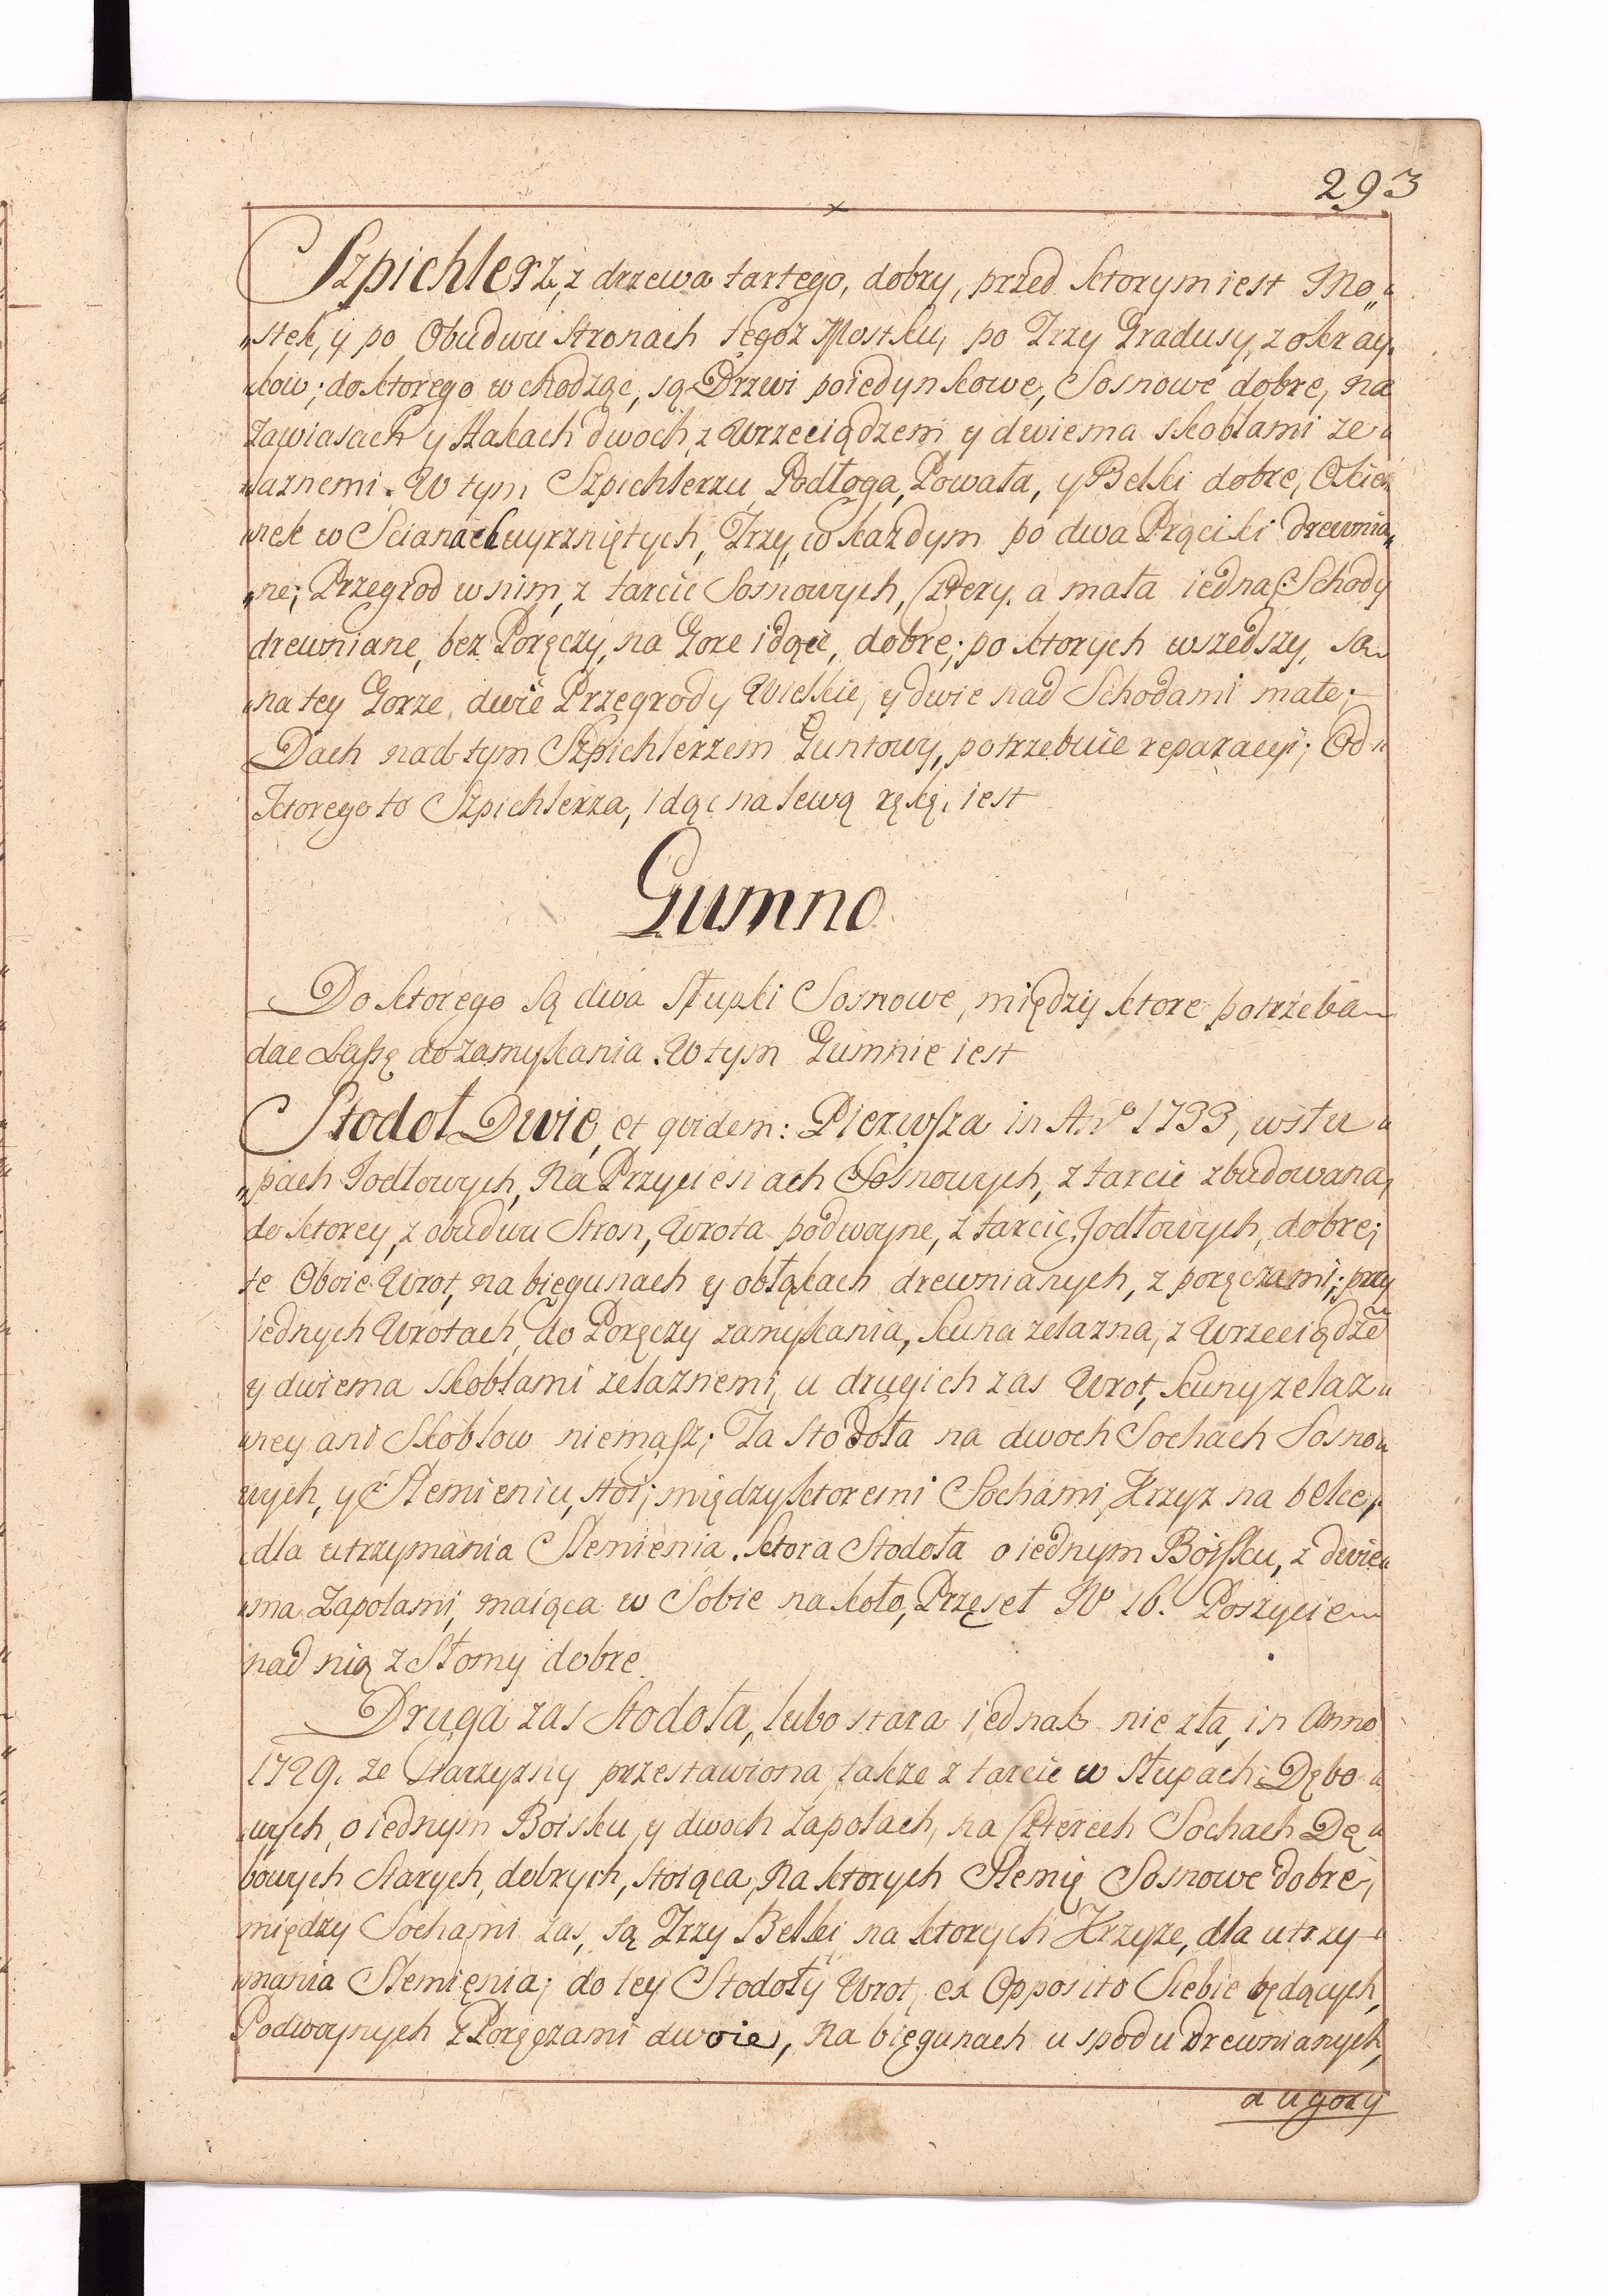 293
Szpichlerz, z drzewa tartego, dobry, przed ktorym iest Mo„
„stek, y po Obudwu Stronach tegoż Mostku, po Trzy Gradusy, z okray„
„kow; do ktorego wchodząc, są Drzwi poiedynkowe, Sosnowe dobre, na
Zawiasach y Hakach dwoch, z Wrzeciądzem y dwiema skoblami że„
„laznemi. W tym Szpichlerzu Podłoga, Powała, y Belki dobre, Okien„
„nek w Scianach wyrzniętych, Trzy, w każdym po dwa Pręciki drewnia„
„ne; Przegrod w nim, z tarcic Sosnowych, Cztery, a mała iedna; Schody
drewniane, bez Poręczy, na Gore idące, dobre; po ktorych wszedszy, są
„na tey Gorze, dwie Przegrody Wielkie, y dwie nad Schodami małe;
Dach nad tym Szpichlerzem Guntowy, potrzebuie reparacyi; Od„
ktorego to Szpichlerza, idąc na lewą rękę, iest
Gumno
Do ktorego są dwa słupki Sosnowe, między ktore potrzeba
dac Lassę do zamykania. W tym Gumnie iest
Stodoł Dwie, et qvidem: Pierwsza in Anº 1733, w słu„
„pach Jodłowych, na Przyciesiach Sosnowych, z tarcic zbudowana,
do ktorey, z obudwu Stron, Wrota podwoyne, z tarcic Jodłowych, dobre;
te Oboie Wrot, na biegunach y obłąkach drewnianych, z poręczami; przy
iednych Wrotach, do Poręczy zamykania, kuna żelazna, z Wrzeciądzẽ
y dwiema skoblami żelaznemi, u drugich zas Wrot, kuny żelaz„
„ney ani Skoblow niemasz; Ta Stodoła na dwoch Sochach Sosno„
wych, y Slemieniu, stoi; między ktoremi Sochami, Krzyz na belce,
dla utrzymania Slemienia. Ktora Stodoła o iednym Boisku, z dwie„
„ma Zapolami, maiąca w Sobie na koło, Przęseł Nº 16. Poszycie
nad nią z Słomy dobre.
Druga zas Stodoła, lubo stara iednak nie zła, in Anno
1729. ze Starzyzny przestawiona, także z tarcic w Słupach Dębo„
„wych, o iednym Boisku, y dwoch Zapolach, na Czterech Sochach Dę„
bowych Starych, dobrych, stoiąca, na ktorych Slemię Sosnowe dobre,
między Sochami zas, są Trzy Belki na ktorych Krzyże, dla utrzy„
„mania Slemienia; do tey Stodoły Wrot, ex Opposito Siebie będących,
Podwoynych z Poręczami dwoie, na biegunach u spodu Drewnianych,
a u gory